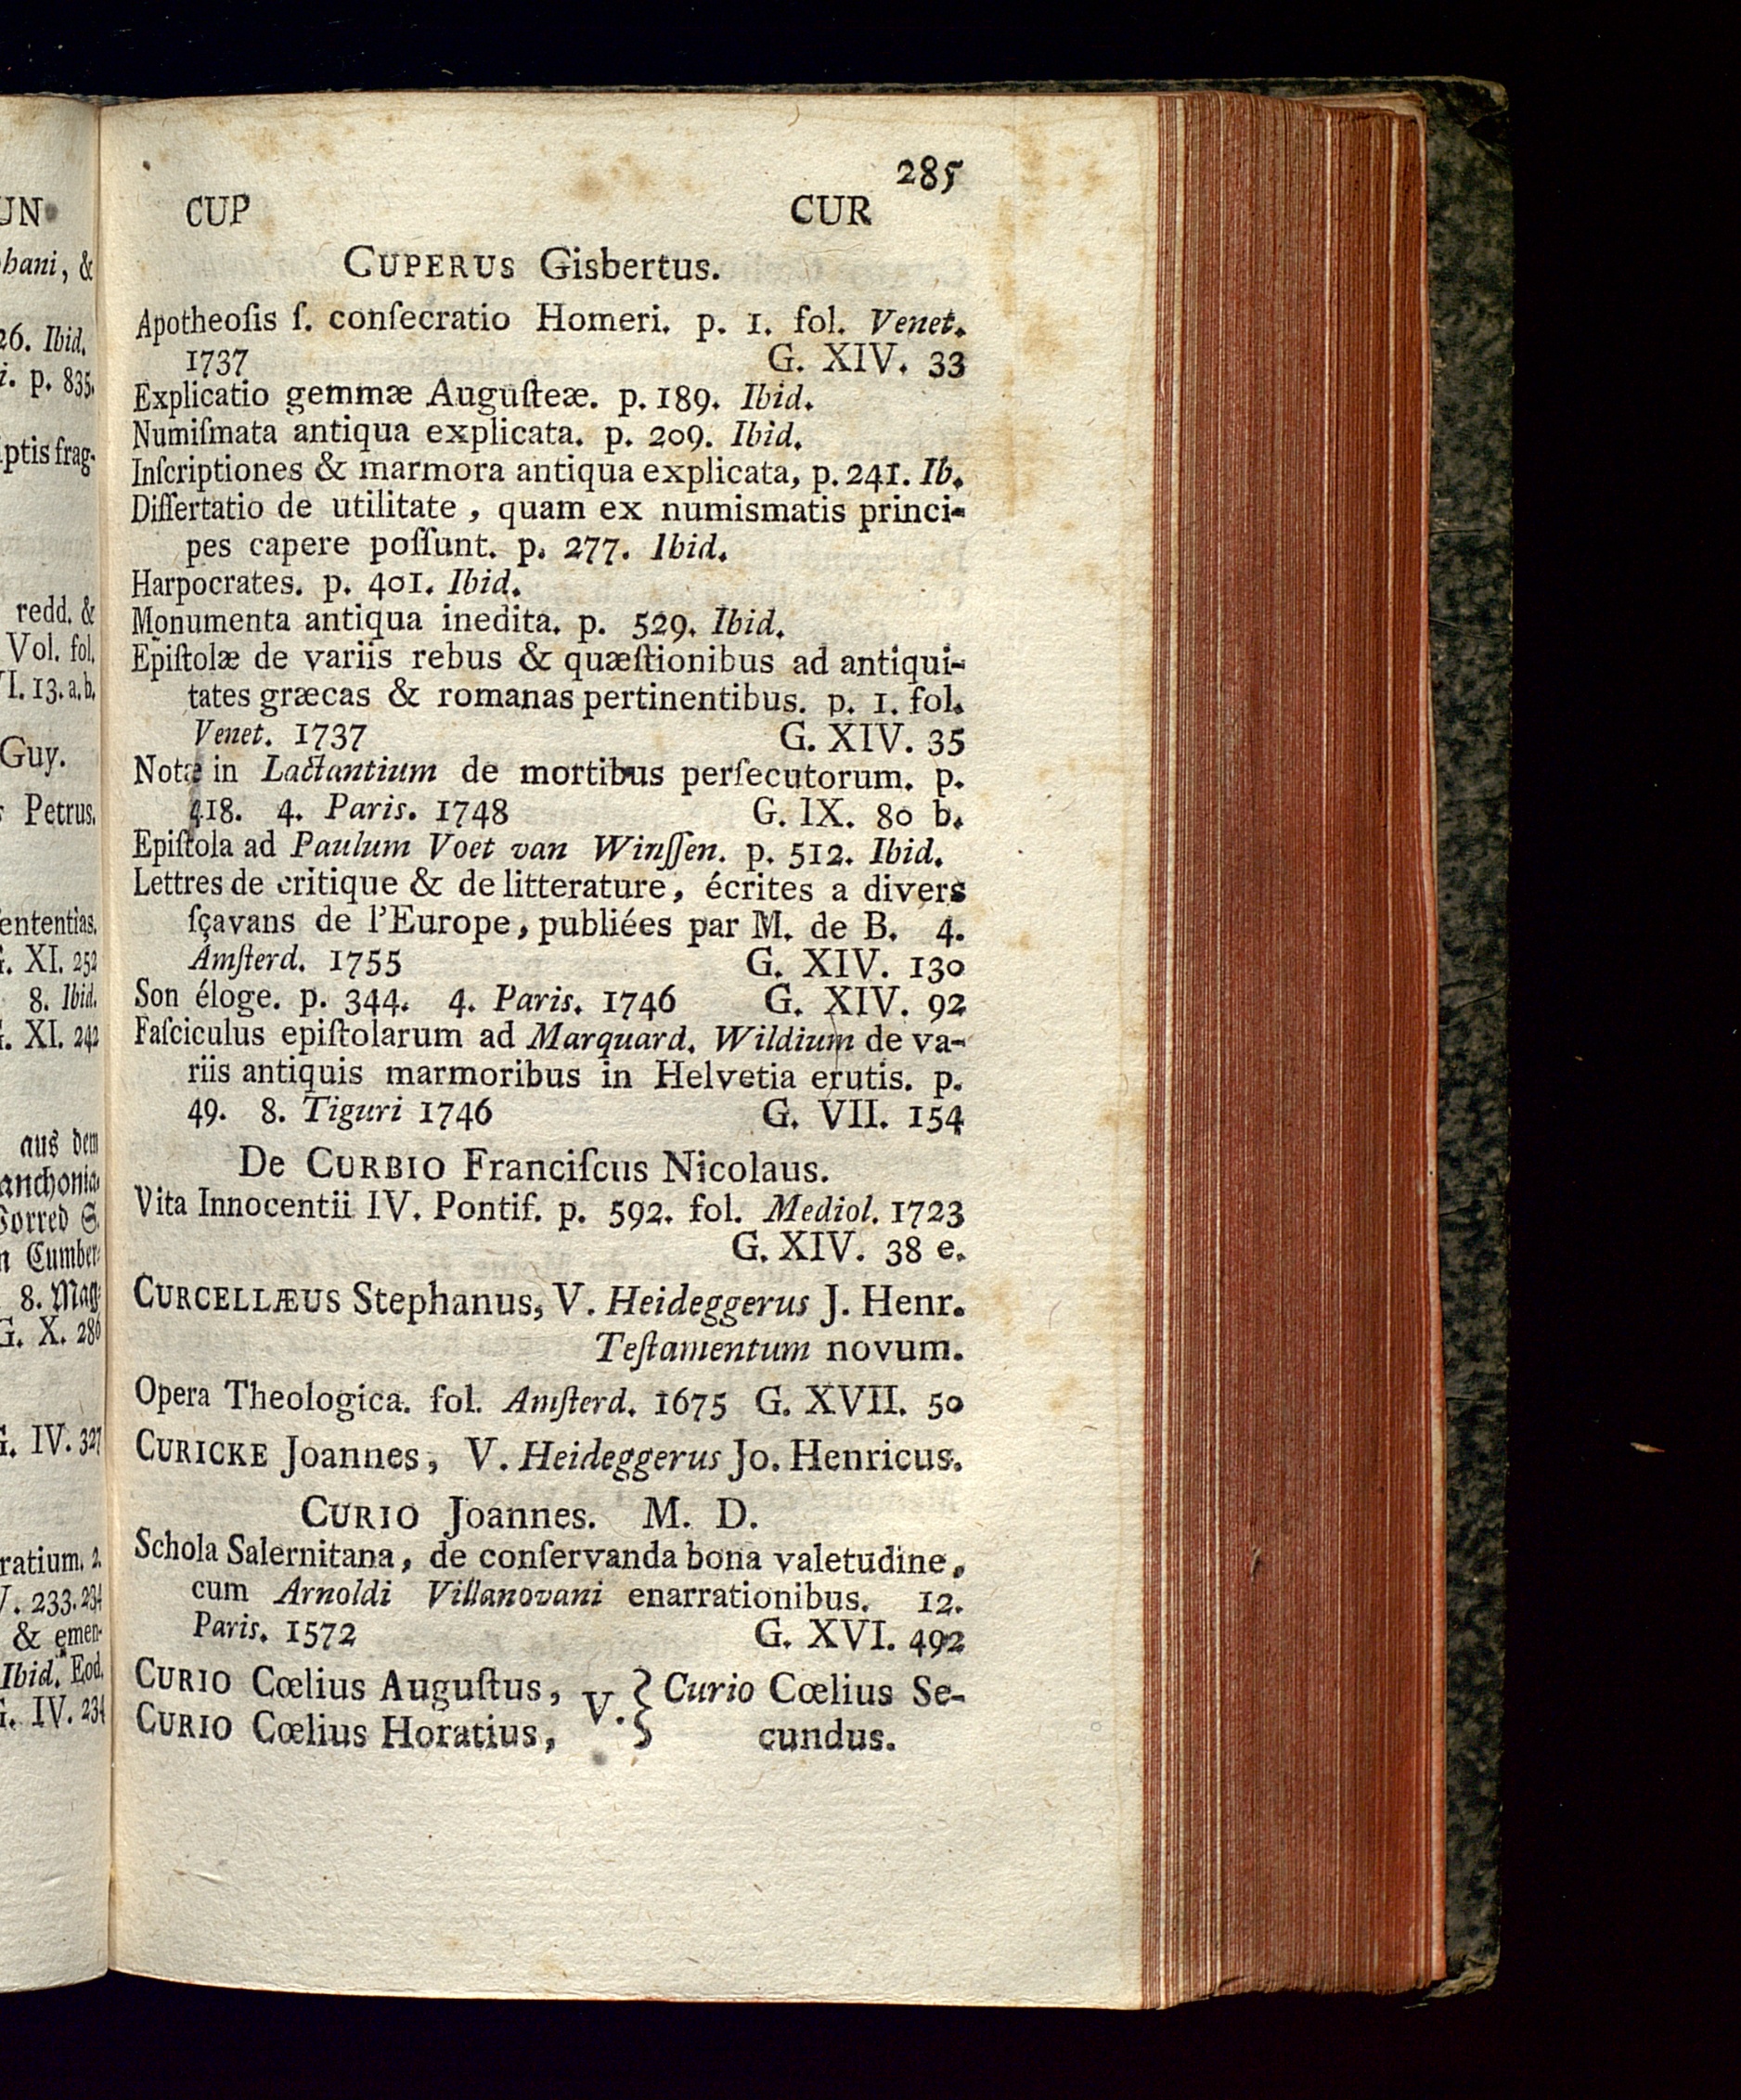 285
CUP CUR
CUPERUS Gisbertus.
Apotheoſis ſ. conſecratio Homeri. p. 1. fol. Venet.
1737 G. XIV. 33
Explicatio gemmæ Auguſteæ. p. 189. Ibid.
Numiſmata antiqua explicata. p. 209. Ibid.
Inſcriptiones & marmora antiqua explicata, p. 241. Ib.
Diſſertatio de utilitate, quam ex numismatis princi-
pes capere poſſunt. p. 277. Ibid.
Harpocrates. p. 401. Ibid.
Monumenta antiqua inedita. p. 529. Ibid.
Epiſtolæ de variis rebus & quæſtionibus ad antiqui-
tates græcas & romanas pertinentibus. p. 1. fol.
Venet. 1737 G. XIV. 35
Notæ in Lactantium de mortibus perſecutorum. p.
418. 4. Paris. 1748 G. IX. 80 b.
Epiſtola ad Paulum Voet van Winſſen. p. 512. Ibid.
Lettres de critique & de litterature, écrites a divers
ſçavans de l'Europe, publiées par M. de B. 4.
Amſterd. 1755 G. XIV. 130
Son éloge. p. 344. 4. Paris. 1746 G. XIV. 92
Faſciculus epiſtolarum ad Marquard. Wildium de va-
riis antiquis marmoribus in Helvetia erutis. p.
49. 8. Tiguri 1746 G. VII. 154
De CURBIO Franciſcus Nicolaus.
Vita Innocentii IV. Pontif. p. 592. fol. Mediol. 1723
G. XIV. 38 e.
CURCELLÆUS Stephanus, V. Heideggerus J. Henr.
Teſtamentum novum.
Opera Theologica. fol. Amſterd. 1675 G. XVII. 50
CURICKE Joannes, V. Heideggerus Jo. Henricus.
CURIO Joannes. M. D.
Schola Salernitana, de conſervanda bona valetudine,
cum Arnoldi Villanovani enarrationibus. 12.
Paris. 1572 G. XVI. 492
CURIO Cœlius Auguſtus, V. } Curio Cœlius Se-
CURIO Cœlius Horatius, cundus.